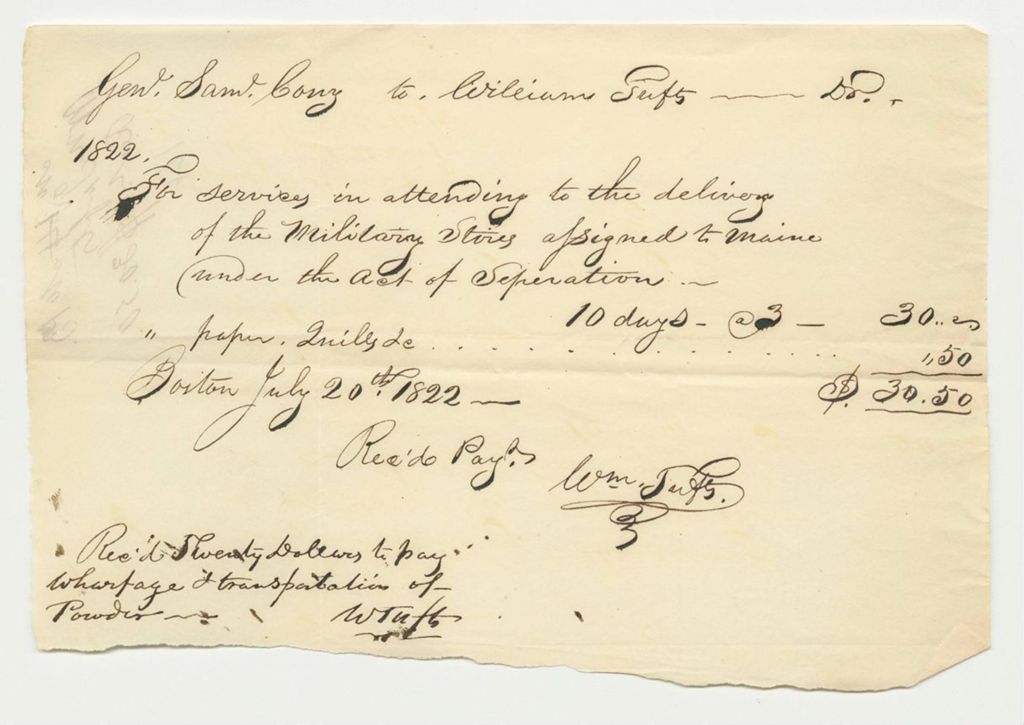 Genl. Saml. Cony to. William Tufts — Dr.
1822.
For services in attending to the delivery
of the Military Stores assigned to Maine
under the Act of Seperation —
10 days - @ 3 — 30..
" paper, Quills &c . . . . . . . . . . . ,,50
Boston July 20th. 1822 — $. 30.50
Rec'd Payt.
Wm. Tufts.
Rec'd Twenty Dollars to pay
wharfage & transportation of
Powder — W Tufts